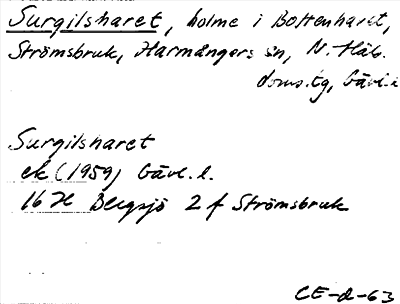 Surgilsharet, holme i Bottenhavet,
Strömsbruk, Harmångers sn, N. Häls.
doms.tg, Gävl. l.
Surgilsharet
ek (1959) Gävl. l.
16 H Bergsjö 2 f Strömsbruk
CE-d-63